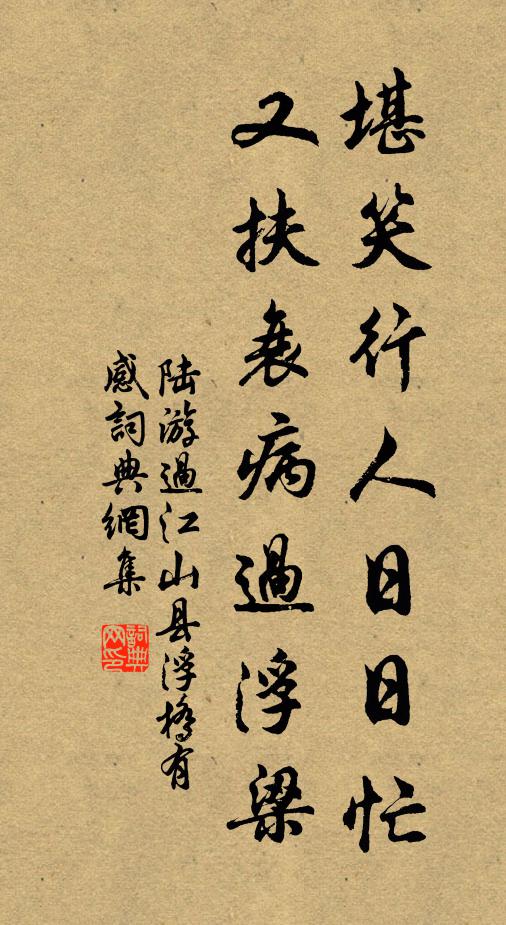 堪笑行人日日忙
又扶衰病過浮梁
陆游過江山县浮橋有
感詞典網集
詞典
网印